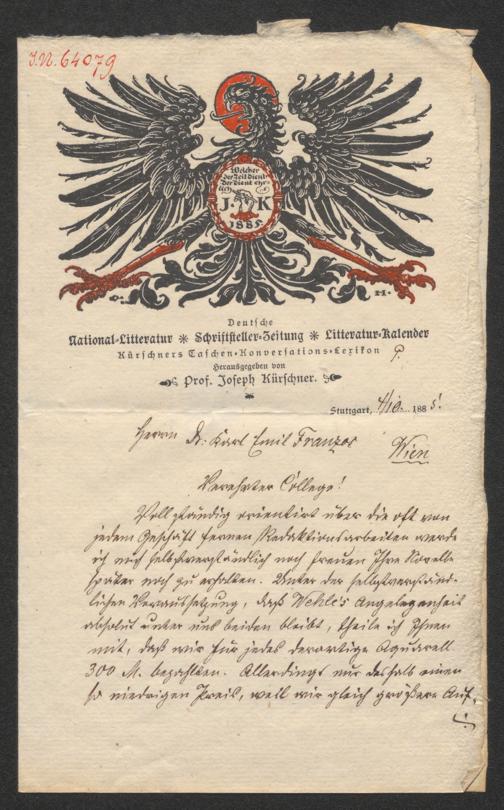 J.N. 64079
Welcher
der Zeit dient
der dient ehr-
lich
J K
1885
C. H.
Deutsche
National-Litteratur * Schriftsteller-Zeitung * Litteratur-Kalender
Kürschners Taschen-Konversations-Lexikon
Herausgegeben von
Prof. Joseph Kürschner.
Stuttgart, 4/10. 1885.
Herrn Dr. Karl Emil Franzos
Wien
Verehrter College!
Vollständig orientirt über die oft von
jedem Geschäft fernen Redaktionsarbeiten werde
ich mich selbstverständlich noch freuen Ihre Novelle
später noch zu erhalten. Unter der selbstverständ-
lichen Voraussetzung, daß Wehle's Angelegenheit
absolut unter uns beiden bleibt, theile ich Ihnen
mit, daß wir für jedes derartige Aquarell
300 M. bezahlten. Allerdings nur deshalb einen
so niedrigen Preis, weil wir gleich größere Auf-